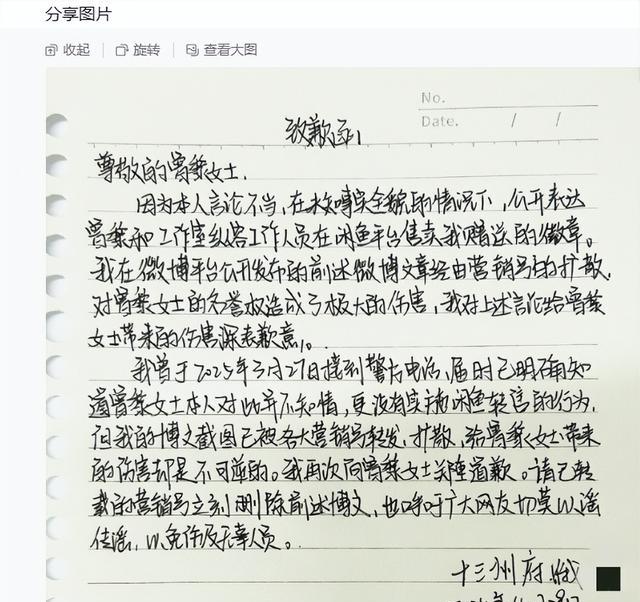 分享图片
收起 旋转 查看大图
No.
Date. / /
致歉函
尊敬的曾黎女士.
因为本人言论不当,在未知事实全貌的情况下,公开表达
曾黎和工作室纵容工作人员在闲鱼平台售卖我赠送的徽章。
我在微博平台公开发布的前述微博文章经由营销号的扩散,
对曾黎女士的名誉权造成了极大的伤害,我对上述言论给曾黎
女士带来的伤害深表歉意。
我曾于2025年3月27日接到警方电话,届时已明确知
道曾黎女士本人对此并不知情,更没有实施闲鱼转售的行为,
但我的博文截图已被各大营销号转发、扩散,给曾黎女士带来
的伤害却是不可逆的。我再次向曾黎女士郑重道歉。请已转
载的营销号立刻删除前述博文,也呼吁广大网友切莫以谣
传谣,以免伤及无辜人员。
十三州府